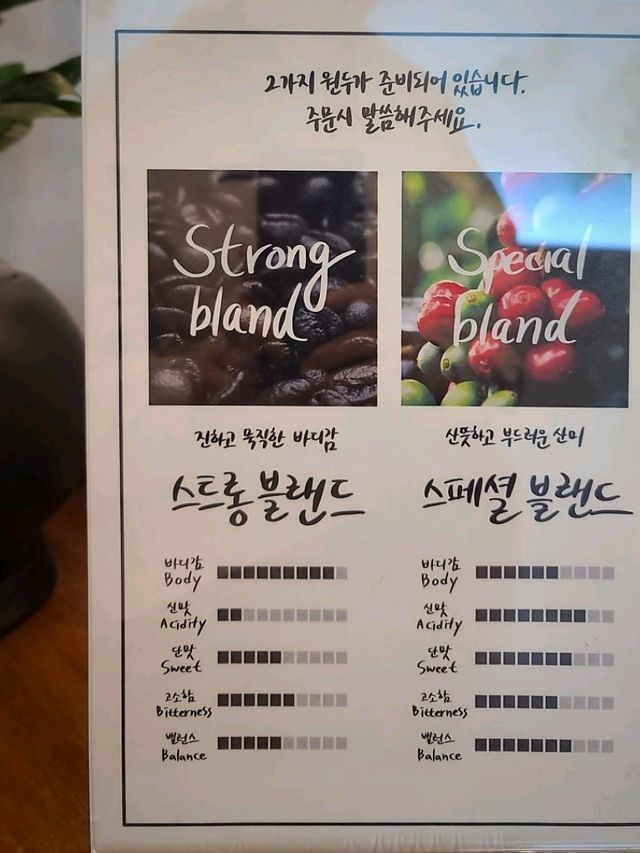 2가지 원두가 준비되어 있습니다.
주문시 말씀해주세요.
Strong
bland
Special
bland
진하고 묵직한 바디감
산뜻하고 부드러운 산미
스트롱 블랜드
스페셜 블랜드
바디감
Body
신맛
Acidity
단맛
Sweet
고소함
Bitterness
밸런스
Balance
바디감
Body
신맛
Acidity
단맛
Sweet
고소함
Bitterness
밸런스
Balance